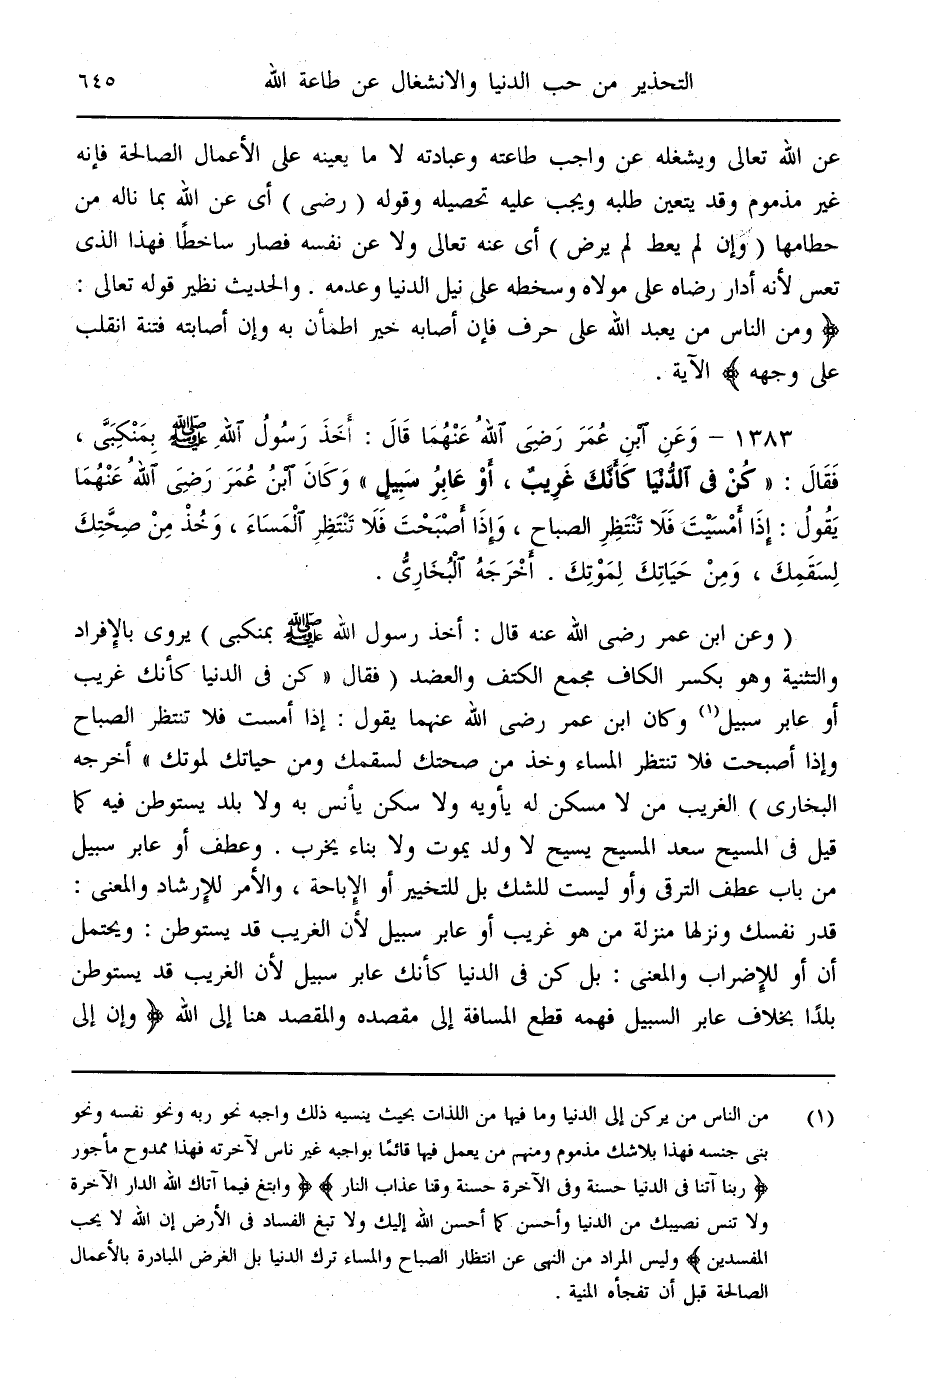 التحذير من حب الدنيا والانشغال عن طاعة الله ٦٤٥
عن الله تعالى ويشغله عن واجب طاعته وعبادته لا ما يعينه على الأعمال الصالحة فإنه
غير مذموم وقد يتعين طلبه ويجب عليه تحصيله وقوله ( رضى ) أى عن الله بما ناله من
حطامها ( وإن لم يعط لم يرض ) أى عنه تعالى ولا عن نفسه فصار ساخطًا فهذا الذى
تعس لأنه أدار رضاه على مولاه وسخطه على نيل الدنيا وعدمه . والحديث نظير قوله تعالى :
﴿ ومن الناس من يعبد الله على حرف فإن أصابه خير اطمأن به وإن أصابته فتنة انقلب
على وجهه ﴾ الآية .
١٣٨٣ – وَعَنِ ٱبْنِ عُمَرَ رَضِىَ ٱللهُ عَنْهُمَا قَالَ : أَخَذَ رَسُولُ ٱللهِ ﷺ بِمَنْكِبَىَّ ،
فَقَالَ : « كُنْ فى ٱلدُّنْيَا كَأَنَّكَ غَرِيبٌ ، أَوْ عَابِرُ سَبِيلٍ » وَكَانَ ٱبْنُ عُمَرَ رَضِىَ ٱللهُ عَنْهُمَا
يَقُولُ : إِذَا أَمْسَيْتَ فَلَا تَنْتَظِرِ الصباح ، وَإِذَا أَصْبَحْتَ فَلَا تَنْتَظِرِ ٱلْمَسَاءَ ، وَخُذْ مِنْ صِحَّتِكَ
لِسَقَمِكَ ، وَمِنْ حَيَاتِكَ لِمَوْتِكَ . أَخْرَجَهُ ٱلْبُخَارِىُّ .
( وعن ابن عمر رضى الله عنه قال : أخذ رسول الله ﷺ بمنكبى ) يروى بالإفراد
والتثنية وهو بكسر الكاف مجمع الكتف والعضد ( فقال « كن فى الدنيا كأنك غريب
أو عابر سبيل(١) وكان ابن عمر رضى الله عنهما يقول : إذا أمست فلا تنتظر الصباح
وإذا أصبحت فلا تنتظر المساء وخذ من صحتك لسقمك ومن حياتك لموتك » أخرجه
البخارى ) الغريب من لا مسكن له يأويه ولا سكن يأنس به ولا بلد يستوطن فيه كما
قيل فى المسيح سعد المسيح يسيح لا ولد يموت ولا بناء يخرب . وعطف أو عابر سبيل
من باب عطف الترقى وأو ليست للشك بل للتخيير أو الإباحة ، والأمر للإرشاد والمعنى :
قدر نفسك ونزلها منزلة من هو غريب أو عابر سبيل لأن الغريب قد يستوطن : ويحتمل
أن أو للإضراب والمعنى : بل كن فى الدنيا كأنك عابر سبيل لأن الغريب قد يستوطن
بلدًا بخلاف عابر السبيل فهمه قطع المسافة إلى مقصده والمقصد هنا إلى الله ﴿ وإن إلى
(١) من الناس من يركن إلى الدنيا وما فيها من اللذات بحيث ينسيه ذلك واجبه نحو ربه ونحو نفسه ونحو
بنى جنسه فهذا بلاشك مذموم ومنهم من يعمل فيها قائمًا بواجبه غير ناس لآخرته فهذا ممدوح مأجور
﴿ ربنا آتنا فى الدنيا حسنة وفى الآخرة حسنة وقنا عذاب النار ﴾ ﴿ وابتغ فيما آتاك الله الدار الآخرة
ولا تنس نصيبك من الدنيا وأحسن كما أحسن الله إليك ولا تبغ الفساد فى الأرض إن الله لا يحب
المفسدين ﴾ وليس المراد من النهى عن انتظار الصباح والمساء ترك الدنيا بل الغرض المبادرة بالأعمال
الصالحة قبل أن تفجأه المنية .